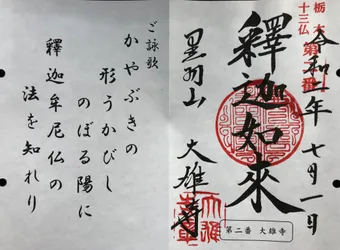 栃木
十三仏
第二番
令和二年 七月一日
釋迦如來
黒羽山 大雄寺
第二番 大雄寺
ご詠歌
かやぶきの
形うかびし
のぼる陽に
釋迦牟尼仏の
法を知れり